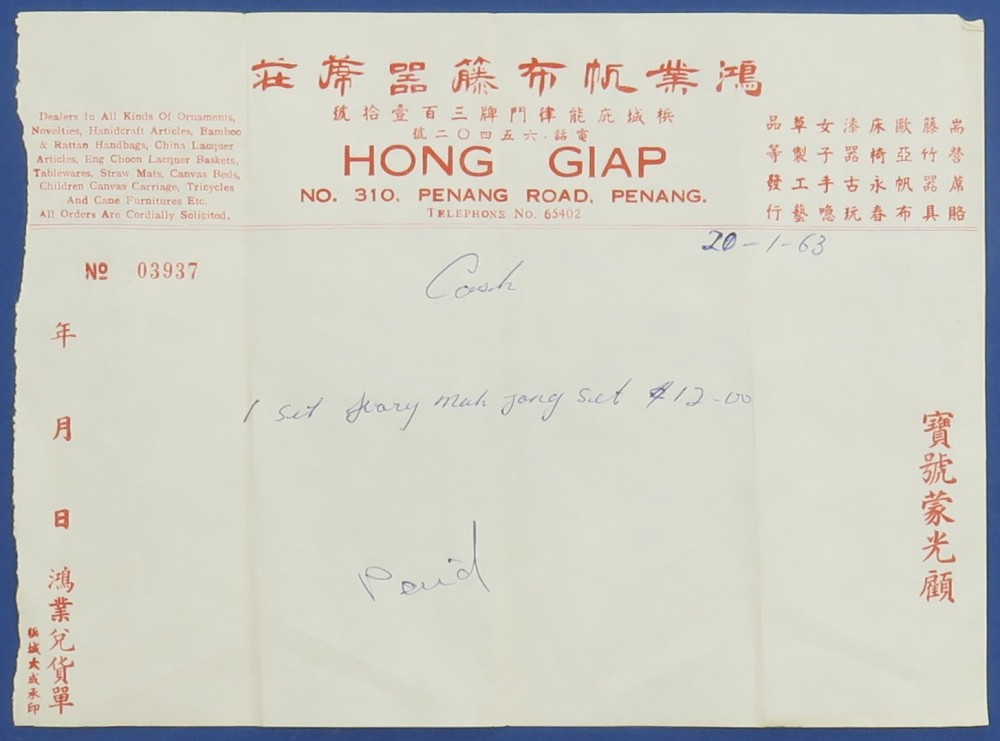 鴻業帆布藤器蓆莊
檳城庇能律門牌三百壹拾號
電話·六五四〇二號
HONG GIAP
NO. 310, PENANG ROAD, PENANG.
TELEPHONE No. 65402
Dealers In All Kinds Of Ornaments,
Novelties, Hanidcraft Articles, Bamboo
& Rattan Handbags, China Lacquer
Articles, Eng Choon Lacquer Baskets,
Tablewares, Straw Mats, Canvas Beds,
Children Canvas Carriage, Tricycles
And Cane Furnitures Etc.
All Orders Are Cordially Solicited.
營蓆
藤竹器具
歐亞帆布
床椅永春
漆器古玩
女子手
草製工藝
品等發行
20-1-63
Nº 03937
Cash
1 set Ivary mah jong set $12-00
Paid
寶號蒙光顧
年 月 日
鴻業兌貨單
檳城大成承印